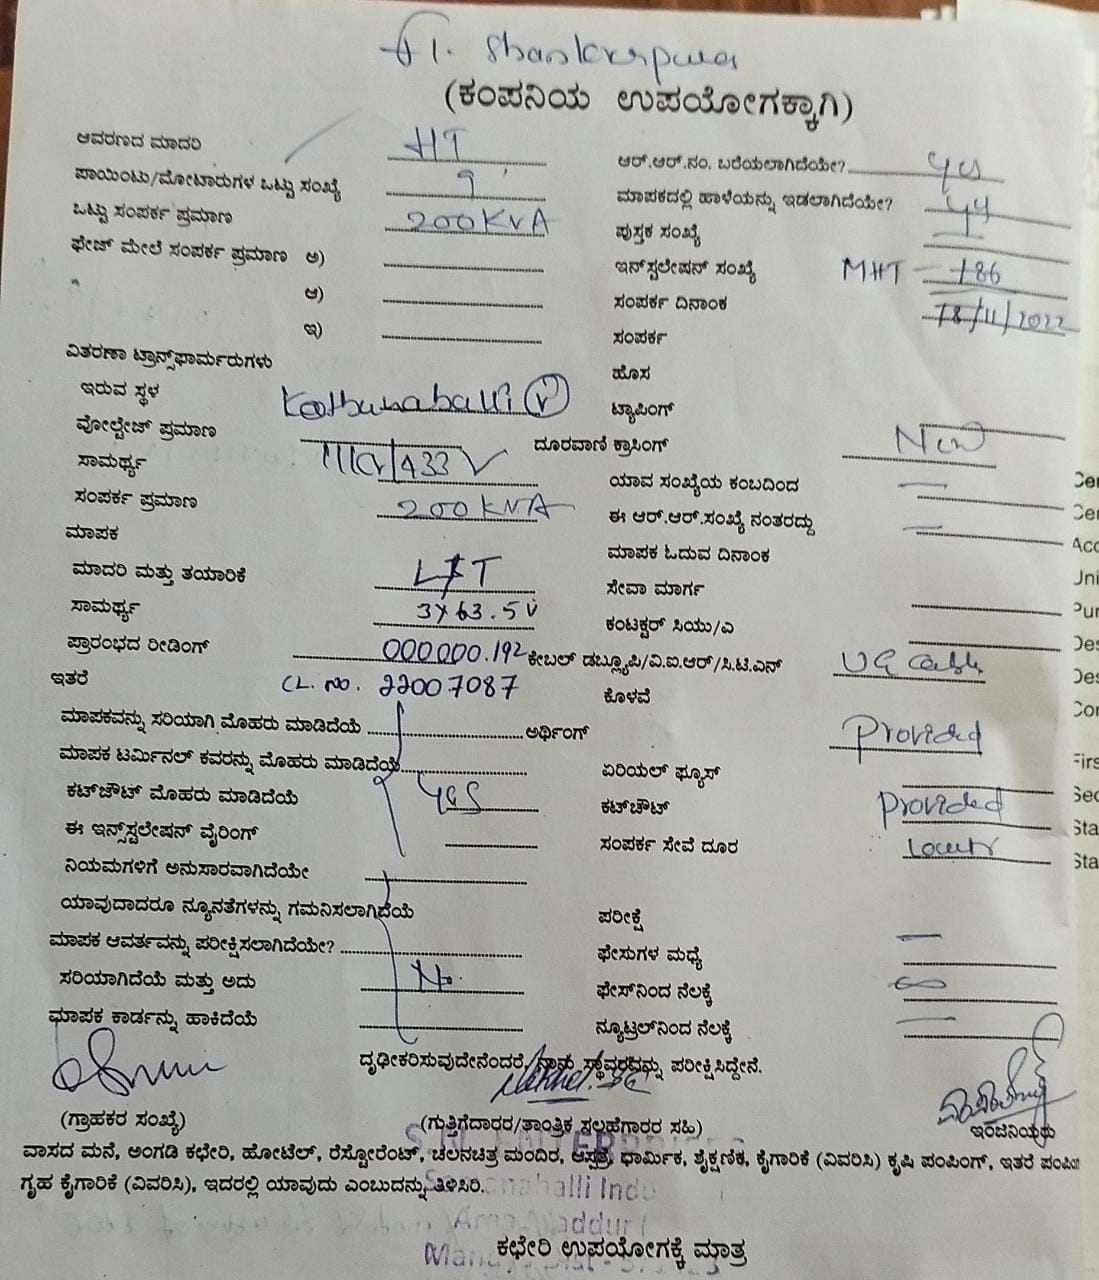 Shankarpura
(ಕಂಪನಿಯ ಉಪಯೋಗಕ್ಕಾಗಿ)
ಆವರಣದ ಮಾದರಿ HT
ಆರ್.ಆರ್.ನಂ. ಬರೆಯಲಾಗಿದೆಯೇ? yes
ಪಾಯಿಂಟು/ಮೋಟಾರುಗಳ ಒಟ್ಟು ಸಂಖ್ಯೆ 9
ಮಾಪಕದಲ್ಲಿ ಹಾಳೆಯನ್ನು ಇಡಲಾಗಿದೆಯೇ?
ಒಟ್ಟು ಸಂಪರ್ಕ ಪ್ರಮಾಣ 200KVA
ಪುಸ್ತಕ ಸಂಖ್ಯೆ —
ಫೇಜ್ ಮೇಲೆ ಸಂಪರ್ಕ ಪ್ರಮಾಣ ಅ)
ಇನ್‌ಸ್ಟಲೇಷನ್ ಸಂಖ್ಯೆ MHT – 186
ಆ)
ಸಂಪರ್ಕ ದಿನಾಂಕ 18/11/2022
ಇ)
ಸಂಪರ್ಕ
ವಿತರಣಾ ಟ್ರಾನ್ಸ್‌ಫಾರ್ಮರುಗಳು
ಹೊಸ
ಇರುವ ಸ್ಥಳ (V)
ಟ್ಯಾಪಿಂಗ್
ವೋಲ್ಟೇಜ್ ಪ್ರಮಾಣ
ದೂರವಾಣಿ ಕ್ರಾಸಿಂಗ್ New
ಸಾಮರ್ಥ್ಯ 11KV/433V
ಯಾವ ಸಂಖ್ಯೆಯ ಕಂಬದಿಂದ —
ಸಂಪರ್ಕ ಪ್ರಮಾಣ 200KVA
ಈ ಆರ್.ಆರ್.ಸಂಖ್ಯೆ ನಂತರದ್ದು —
ಮಾಪಕ
ಮಾಪಕ ಓದುವ ದಿನಾಂಕ
ಮಾದರಿ ಮತ್ತು ತಯಾರಿಕೆ L&T
ಸೇವಾ ಮಾರ್ಗ
ಸಾಮರ್ಥ್ಯ 3X63.5V
ಕಂಟಕ್ಟರ್ ಸಿಯು/ಎ
ಪ್ರಾರಂಭದ ರೀಡಿಂಗ್ 000000.192
ಕೇಬಲ್ ಡಬ್ಲ್ಯೂಪಿ/ವಿ.ಐ.ಆರ್/ಸಿ.ಟಿ.ಎನ್ UG Cable
ಇತರೆ CL. No. 22007087
ಕೊಳವೆ
ಮಾಪಕವನ್ನು ಸರಿಯಾಗಿ ಮೊಹರು ಮಾಡಿದೆಯೆ
ಅರ್ಥಿಂಗ್ Provided
ಮಾಪಕ ಟರ್ಮಿನಲ್ ಕವರನ್ನು ಮೊಹರು ಮಾಡಿದೆಯೆ
ಏರಿಯಲ್ ಫ್ಯೂಸ್
ಕಟ್‌ಜೌಟ್ ಮೊಹರು ಮಾಡಿದೆಯೆ Yes
ಕಟ್‌ಚೌಟ್ Provided
ಈ ಇನ್ಸ್‌ಸ್ಟಲೇಷನ್ ವೈರಿಂಗ್
ಸಂಪರ್ಕ ಸೇವೆ ದೂರ
ನಿಯಮಗಳಿಗೆ ಅನುಸಾರವಾಗಿದೆಯೇ
ಯಾವುದಾದರೂ ನ್ಯೂನತೆಗಳನ್ನು ಗಮನಿಸಲಾಗಿದೆಯೆ
ಪರೀಕ್ಷೆ —
ಮಾಪಕ ಆವರ್ತವನ್ನು ಪರೀಕ್ಷಿಸಲಾಗಿದೆಯೇ?
ಫೇಸುಗಳ ಮಧ್ಯೆ
ಸರಿಯಾಗಿದೆಯೆ ಮತ್ತು ಅದು No
ಫೇಸ್‌ನಿಂದ ನೆಲಕ್ಕೆ ∞
ಮಾಪಕ ಕಾರ್ಡನ್ನು ಹಾಕಿದೆಯೆ
ನ್ಯೂಟ್ರಲ್‌ನಿಂದ ನೆಲಕ್ಕೆ —
ದೃಢೀಕರಿಸುವುದೇನೆಂದರೆ, ನಾನು ಸ್ಥಾವರವನ್ನು ಪರೀಕ್ಷಿಸಿದ್ದೇನೆ.
(ಗ್ರಾಹಕರ ಸಂಖ್ಯೆ)
(ಗುತ್ತಿಗೆದಾರರ/ತಾಂತ್ರಿಕ ಸಲಹೆಗಾರರ ಸಹಿ)
ಇಂಜಿನಿಯರು
ವಾಸದ ಮನೆ, ಅಂಗಡಿ ಕಛೇರಿ, ಹೋಟೆಲ್, ರೆಸ್ಟೋರೆಂಟ್, ಚಲನಚಿತ್ರ ಮಂದಿರ, ಆಸ್ಪತ್ರೆ, ಧಾರ್ಮಿಕ, ಶೈಕ್ಷಣಿಕ, ಕೈಗಾರಿಕೆ (ವಿವರಿಸಿ) ಕೃಷಿ ಪಂಪಿಂಗ್, ಇತರೆ ಪಂಪಿಂಗ್
ಗೃಹ ಕೈಗಾರಿಕೆ (ವಿವರಿಸಿ), ಇದರಲ್ಲಿ ಯಾವುದು ಎಂಬುದನ್ನು ತಿಳಿಸಿರಿ.
ಕಛೇರಿ ಉಪಯೋಗಕ್ಕೆ ಮಾತ್ರ